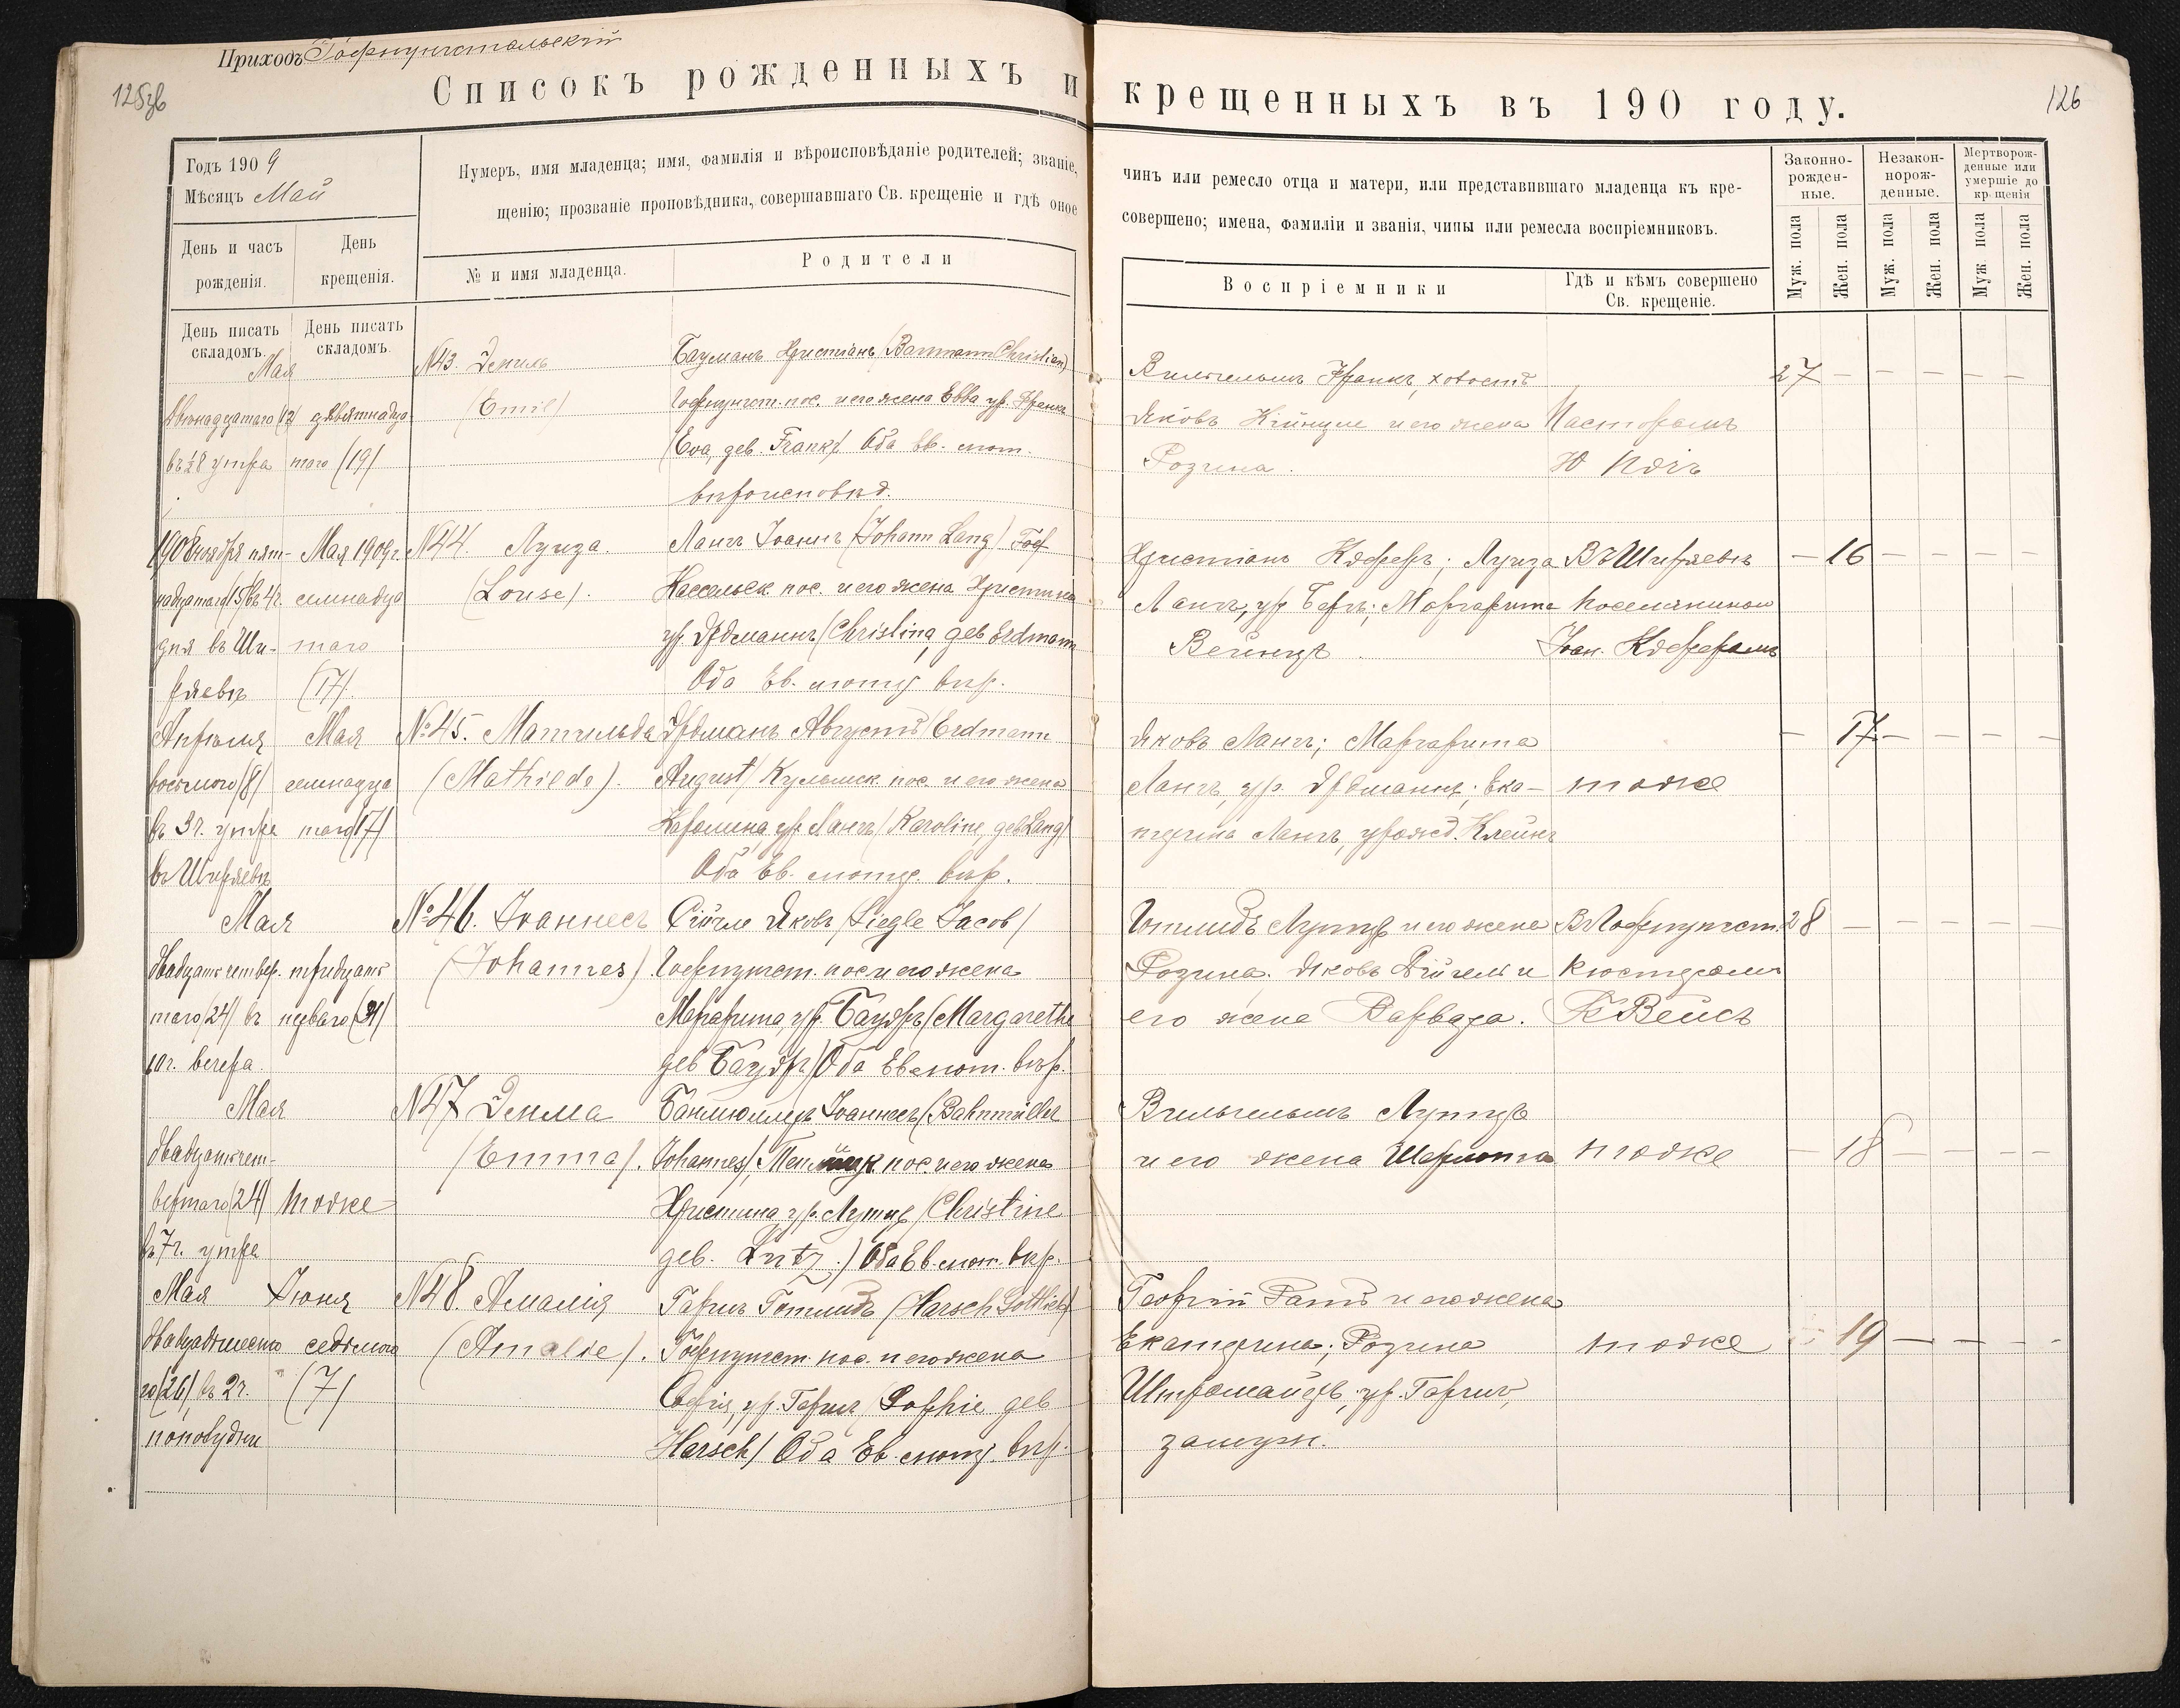 Приходъ Гофнунгстальскій
125зв
126
Списокъ рожденныхъ и крещенныхъ въ 190 году.
Годъ 1909
Мѣсяцъ Май
Нумеръ, имя младенца; имя, фамилія и вѣроисповѣданіе родителей; званіе, чинъ или ремесло отца и матери, или представившаго младенца къ кре-
щенію; прозваніе проповѣдника, совершавшаго Св. крещеніе и гдѣ оное совершено; имена, фамиліи и званія, чины или ремесла воспріемниковъ.
Законно-
рожден-
ные.
Незакон-
норож-
денные.
Мертворож-
денные или
умершіе до
крещенія
Муж. пола
Жен. пола
Муж. пола
Жен. пола
Муж. пола
Жен. пола
День и часъ
рожденія.
День
крещенія.
№ и имя младенца.
Родители
Воспріемники
Гдѣ и кѣмъ совершено
Св. крещеніе.
День писать
складомъ.
День писать
складомъ.
Мая
двѣнадцатаго (12)
въ ½8 утра
девятнадца-
таго (19)
№43. Эмиль
(Emil)
Бауманъ Христіанъ (Baumann Christian)
Гофнунгст. пос. и его жена Евва ур. Франкъ
(Eva, geb. Frank) Оба Ев. лют.
вѣроисповѣд.
Вильгельмъ Франкъ, холостъ
Яковъ Кіинцле и его жена
Розина.
Пасторомъ
Ю Кохъ
27 – – – – –
1908 ноября пят-
надцатаго (15) въ 4 ч.
дня въ Ши-
ряевѣ
Мая 1909 г.
семнадца
таго
(17).
№44. Луиза.
(Louise).
Лангъ Іоаннъ (Johann Lang) Гоф
Кассельск. пос. и его жена Христина
ур. Эрдманнъ (Christina, geb Erdmann
Оба Ев. лютер вѣр.
Христіанъ Кэферъ; Луиза
Лангъ, ур Бергъ; Маргарита
Вейнцъ
Въ Ширяевѣ
поселяниномъ
Іоан. Кэферомъ
– 16 – – – –
Апрѣля
восьмого (8)
въ 3 ч. утра
въ Ширяевѣ
Мая
семнадца
таго (17)
№45. Матильда
(Mathilde).
Эрдманъ Августъ (Erdmann
August) Кульмск. пос. и его жена
Каролина, ур. Лангъ (Karoline, geb Lang)
Оба Ев. лютер. вѣр.
Яковъ Лангъ; Маргарита
Лангъ, ур. Эрдманнъ; Ека-
терина Лангъ, урожд. Клейнъ
тоже
– 17 – – – –
Мая
двадцать четвер.
таго (24) въ
10 ч. вечера.
тридцать
перваго (31)
№46. Іоаннесъ
(Johannes)
Сійгле Яковъ (Siegle Jacob)
Гофнунгст. пос. и его жена
Маргарита, ур. Бауэръ (Margarethe
geb Бауэръ) Оба Ев лют. вѣр.
Готлибъ Лутцъ и его жена
Розина. Яковъ и
его жена Варвара.
Въ Гофнунгст.
кюстеромъ
Вейсъ
28 – – – –
Мая
двадцать чет-
вертаго (24)
въ 7 ч. утра
тоже
№47 Эмма
(Emma).
Банмюллеръ Іоаннесъ (Bahnmüller
Johannes), пос. и его жена
Христина ур. Лутцъ (Christine
geb. Lutz.) Оба Ев. лют. вѣр.
Вильгельмъ Лутцъ
и его жена Шарлотта
тоже
– 18 – – – –
Мая
двадцатьшесто
го (26) въ 2 ч.
пополудни
Іюня
седьмого
(7)
№48. Амалія
(Amalie).
Гаршъ Готлибъ (Harsch Gottlieb)
Гофнунгст. пос. и его жена
Софія, ур. Гаршъ (Sophie geb
Harsch) Оба Ев. лютер. вѣр.
Георгій Ратъ и его жена
Екатерина; Розина
Штромайеръ, ур. Гаршъ,
замужн.
тоже
– 19 – – – –